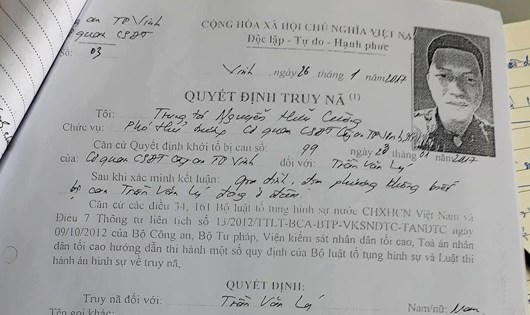 CỘNG HÒA XÃ HỘI CHỦ NGHĨA VIỆT NAM
Công an TP Vinh
Độc lập - Tự do - Hạnh phúc
Cơ quan CSĐT
Số: 03
Vinh, ngày 26 tháng 1 năm 2017
QUYẾT ĐỊNH TRUY NÃ (1)
Tôi: Trung tá Nguyễn Hữu Cường
Chức vụ: Phó Thủ trưởng Cơ quan CSĐT Công an TP Vinh
Căn cứ Quyết định khởi tố bị can số: 99 ngày 23 tháng 01 năm 2017
của: Cơ quan CSĐT Công an TP Vinh đối với: Trần Văn Lý
Sau khi xác minh kết luận: gia đình, địa phương không biết
bị can Trần Văn Lý đang ở đâu.
Căn cứ các điều 34, 161 Bộ luật tố tụng hình sự nước CHXHCN Việt Nam và
Điều 7 Thông tư liên tịch số 13/2012/TTLT-BCA-BTP-VKSNDTC-TANDTC ngày
09/10/2012 của Bộ Công an, Bộ Tư pháp, Viện kiểm sát nhân dân tối cao, Toà án nhân
dân tối cao hướng dẫn thi hành một số quy định của Bộ luật tố tụng hình sự và Luật thi
hành án hình sự về truy nã.
QUYẾT ĐỊNH:
Truy nã đối với: Trần Văn Lý Nam/nữ: Nam
Tên gọi khác: